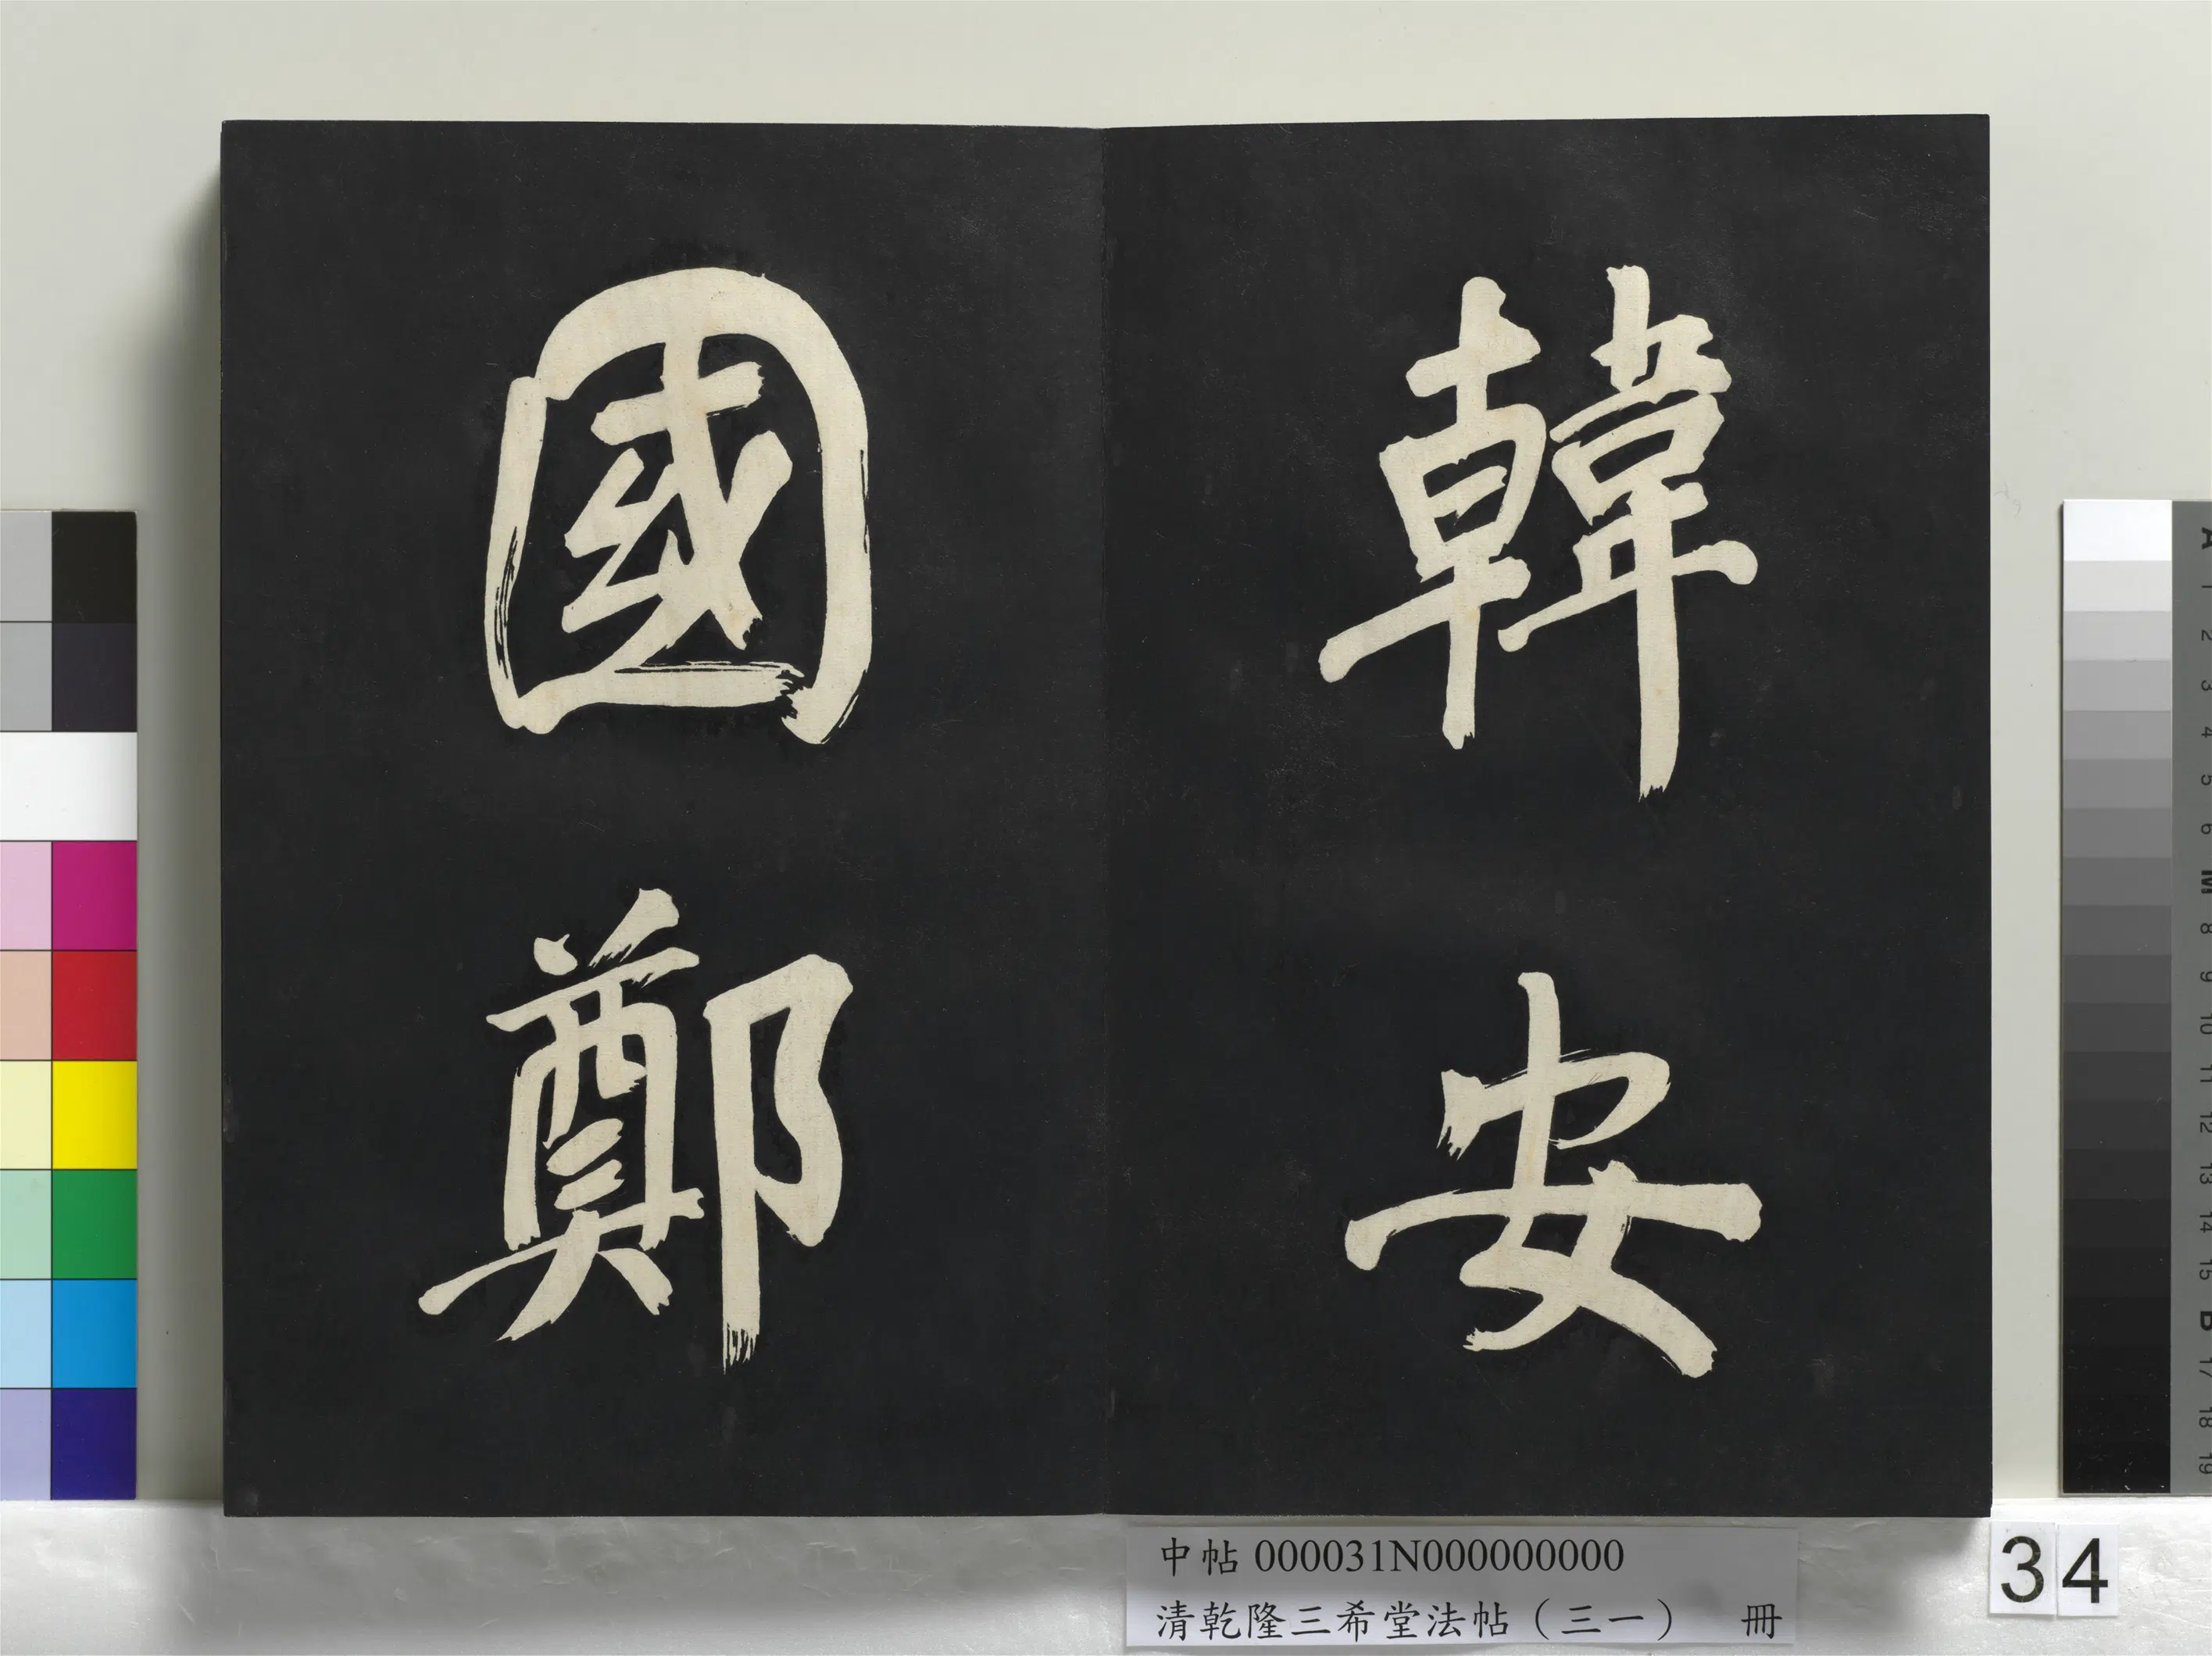 韓安
國鄭
中帖 000031N000000000
清乾隆三希堂法帖（三一） 冊
34
A
1
2
3
4
5
6
M
8
9
10
11
12
13
14
15
B
17
18
19